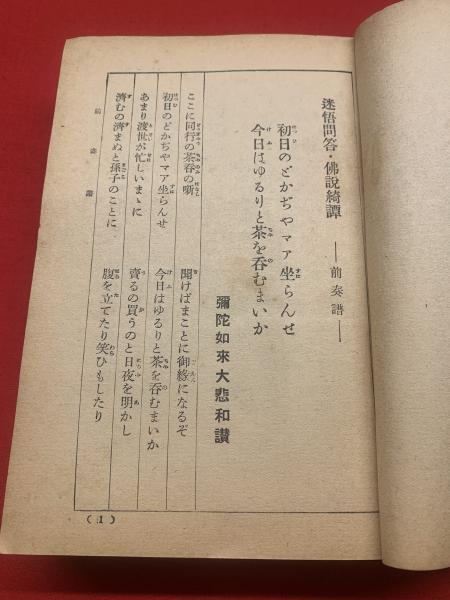 迷悟問答・佛說綺譚 ――前奏譜――
初日のどかぢやマア坐らんせ
今日はゆるりと茶を呑むまいか
彌陀如來大悲和讚
ここに同行の茶呑の噺 聞けばまことに御緣になるぞ
初日のどかぢやマア坐らんせ 今日はゆるりと茶を呑むまいか
あまり渡世が忙しいまゝに 賣るの買うのと日夜を明かし
濟むの濟まぬと孫子のことに 腹を立てたり笑ひもしたり
前奏譜
(1)